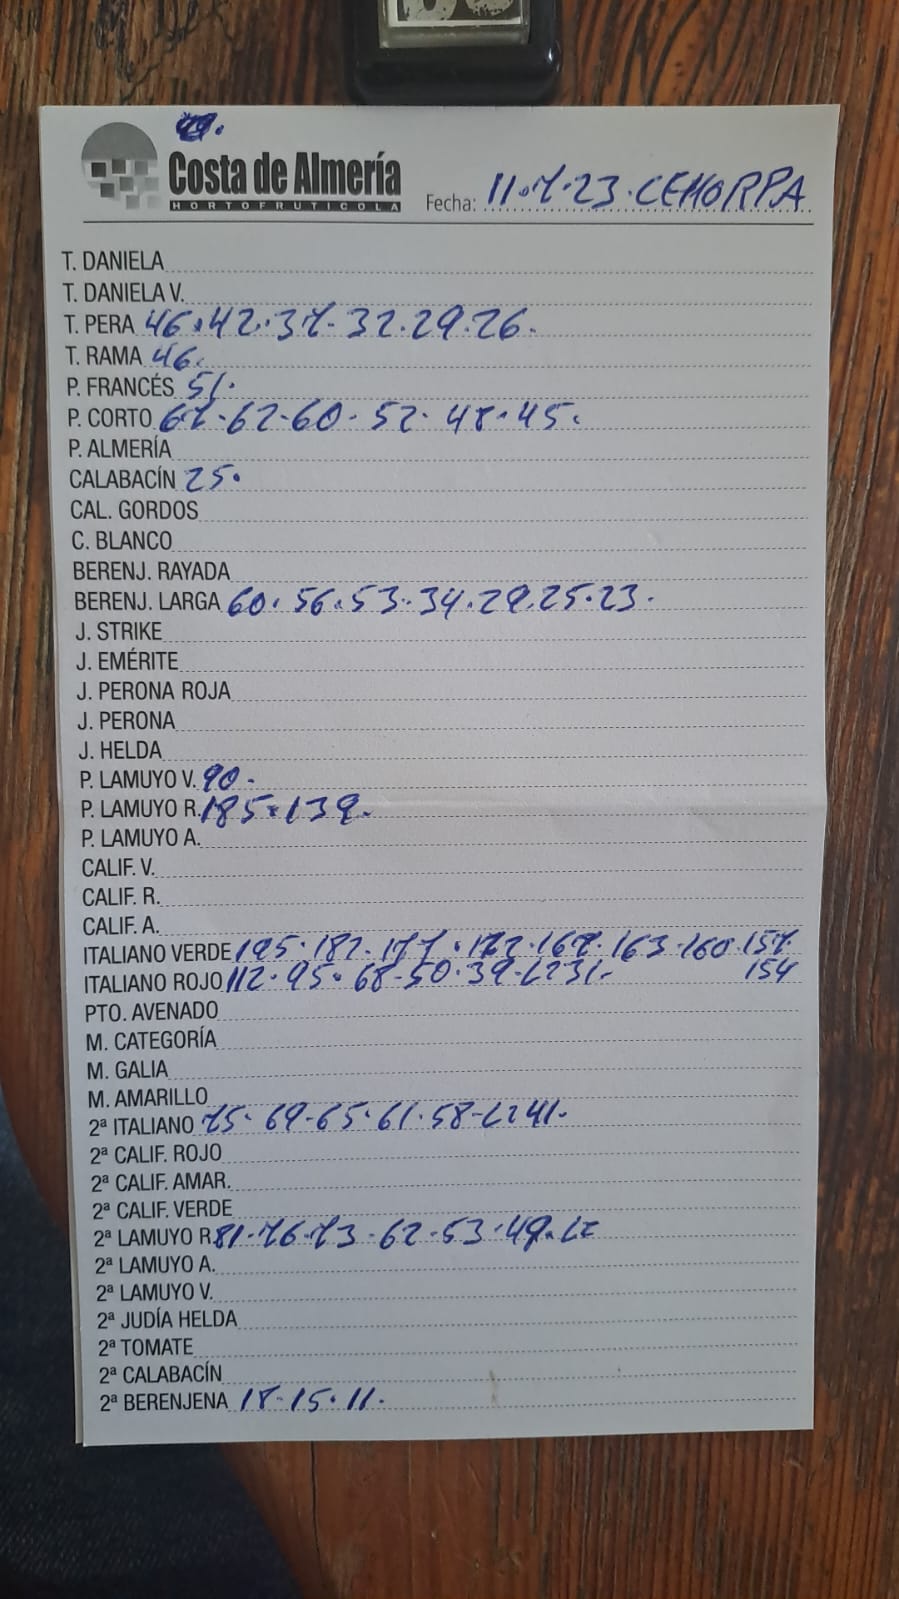 Costa de Almería
HORTOFRUTICOLA
Fecha: 11.7.23. CEHORPA
T. DANIELA
T. DANIELA V.
T. PERA 46.42.37.32.29.26.
T. RAMA 46.
P. FRANCÉS 51.
P. CORTO 67-62-60-52.48.45.
P. ALMERÍA
CALABACÍN 25.
CAL. GORDOS
C. BLANCO
BERENJ. RAYADA
BERENJ. LARGA 60.56.53.34.29.25.23.
J. STRIKE
J. EMÉRITE
J. PERONA ROJA
J. PERONA
J. HELDA
P. LAMUYO V. 90-
P. LAMUYO R. 185.139.
P. LAMUYO A.
CALIF. V.
CALIF. R.
CALIF. A.
ITALIANO VERDE 195.182-177.172.167.163-160.157.
ITALIANO ROJO 112.95.68-50.39-LZ31. 154
PTO. AVENADO
M. CATEGORÍA
M. GALIA
M. AMARILLO
2ª ITALIANO 75.69-65.61.58-LZ41.
2ª CALIF. ROJO
2ª CALIF. AMAR.
2ª CALIF. VERDE
2ª LAMUYO R. 81.76-73-62-53.49.LZ
2ª LAMUYO A.
2ª LAMUYO V.
2ª JUDÍA HELDA
2ª TOMATE
2ª CALABACÍN
2ª BERENJENA 18-15.11.